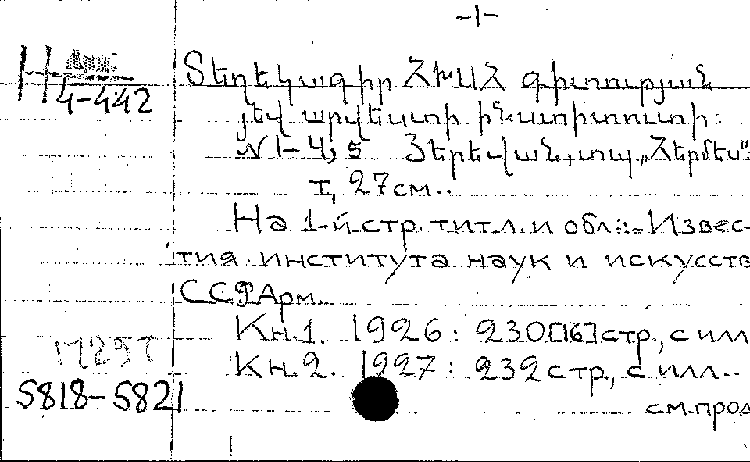 -1-
Տեղեկագիր ՀԽՍՀ գիտության
յեվ արվեստի ինստիտուտի:
N 1-4, 5 Յերեվան, տպ. „Հերմես":
т, 27см..
На 1-й стр. титл. и обл.: Извес-
тия института наук и искусств
ССРАрм.
Кн.1. 1926: 230[16]стр., с илл
Кн.2. 1927: 232 стр., с илл..
см.прод
4-442
5818-5821